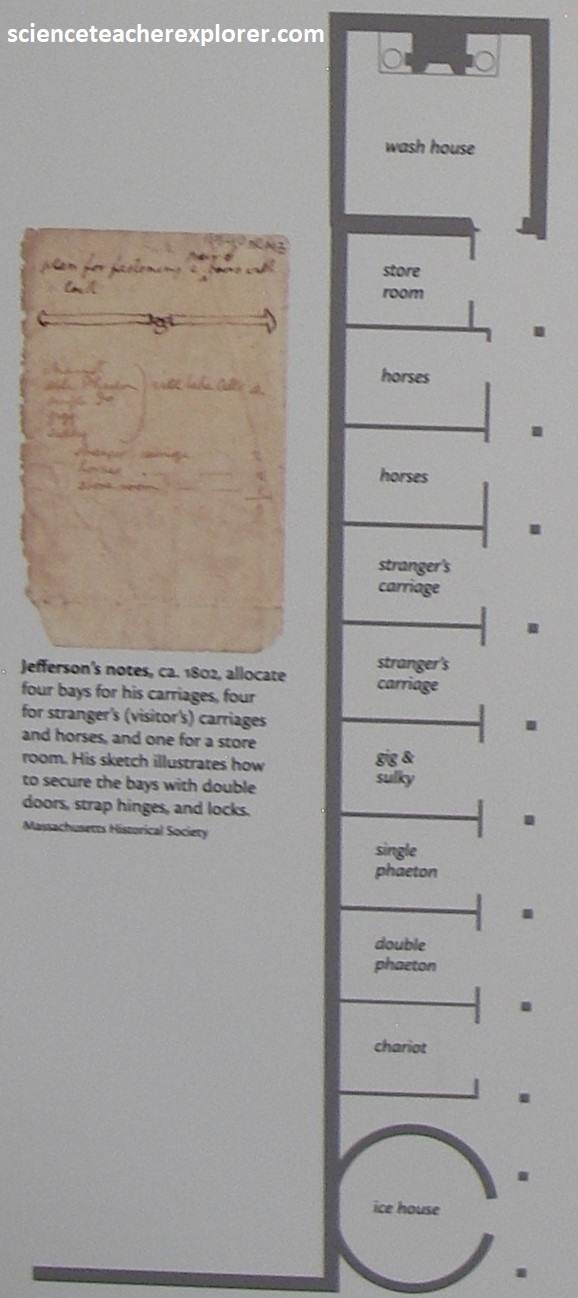 scienceteacherexplorer.com
wash house
plan for fastening 2 doors with
lock
store
room
horses
horses
stranger's
carriage
stranger's
carriage
gig &
sulky
single
phaeton
double
phaeton
chariot
ice house
Jefferson's notes, ca. 1802, allocate
four bays for his carriages, four
for stranger's (visitor's) carriages
and horses, and one for a store
room. His sketch illustrates how
to secure the bays with double
doors, strap hinges, and locks.
Massachusetts Historical Society